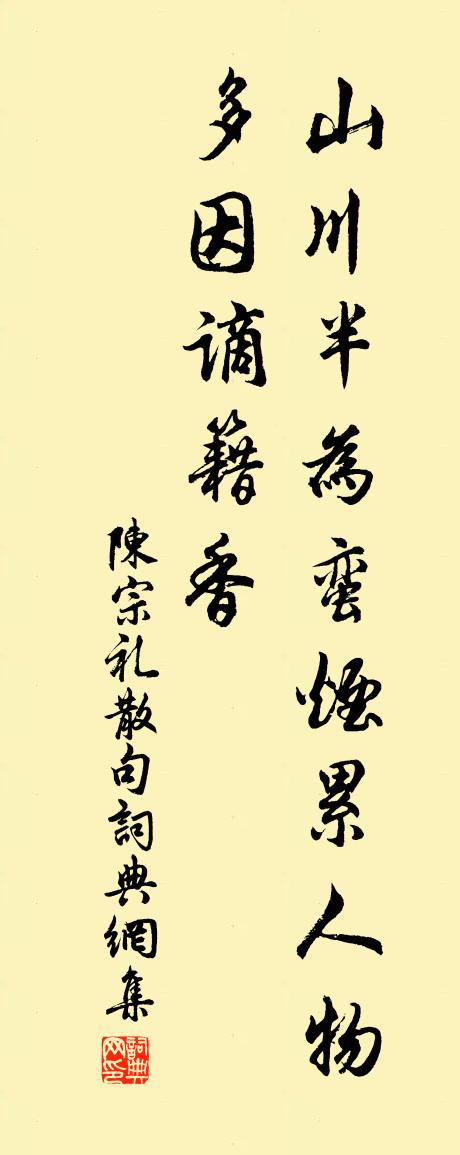 山川半為蛮煙累人物
多因謫籍香
陳宗礼散句詞典網集
詞典网印